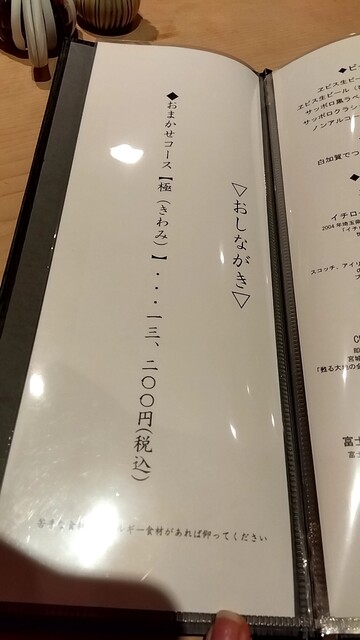 ▽おしながき▽
◆おまかせコース【極（きわみ）】・・・一三、二〇〇円（税込）
苦手な食 ルギー食材があれば仰ってください
◆ビ
ヱビス生ビー
ヱビス生ビール（
サッポロ黒ラベ
サッポロクラシ
ノンアルコ
白加賀でつ
◆
イチロ
2004年埼玉
「イチ
スコッチ、アイリ
宮城
「甦る大地の
富士
富士